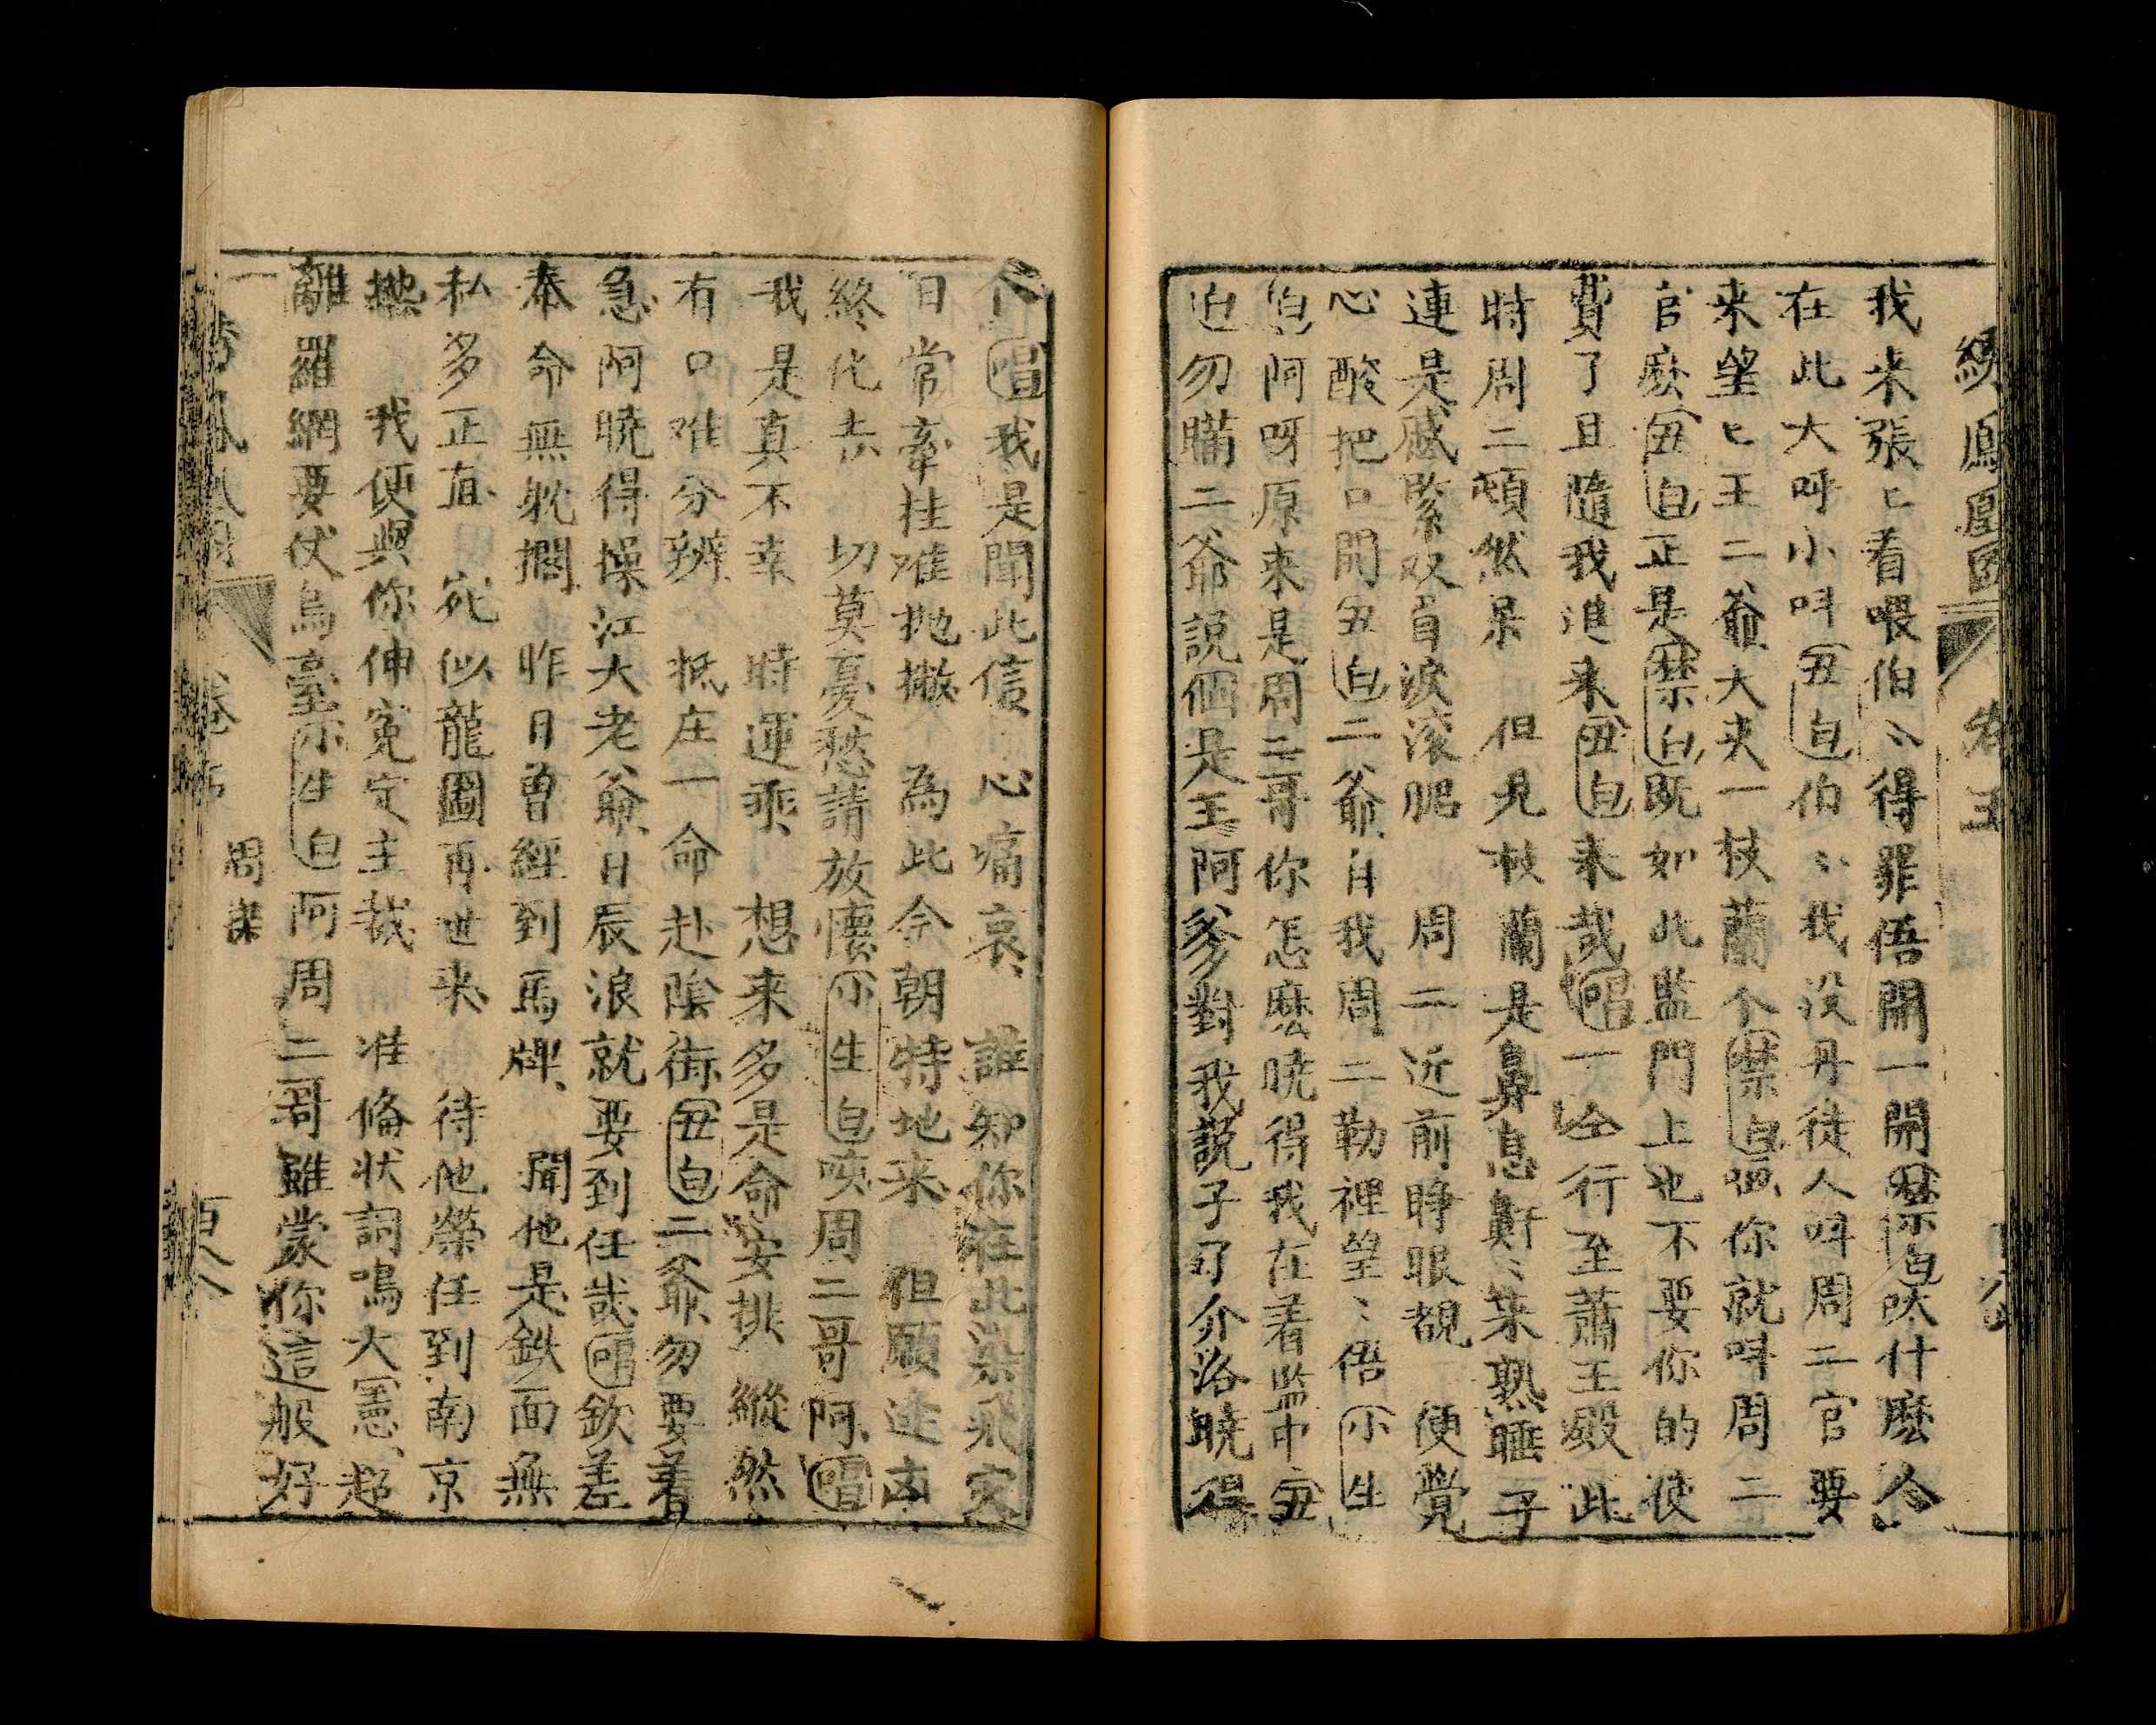 綉鳳凰圖 卷五
我来張〻看喂伯〻得罪俉開一開禁白呔什麽人
在此大呼小呌丑白伯〻我没丹徒人呌周二官要
来望〻王二爺大夾一枝蘭个禁白你就呌周二
官麽丑白正是禁白既如此監門上也不要你的使
費了且隨我進来丑白来哉唱一仝行至蕭王殿 此
時周二頓然呆 但見枝蘭是鼻息鼾〻来熟睡 子
連是慼緊双眉淚滚腮 周二近前睁眼覩 便覺
心酸把口開丑白二爺自我周二勒裡望〻俉小生
白阿呀原来是周二哥你怎麽曉得我在着監中丑
白勿瞞二爺説個是王阿爹對我説子了介洛曉得
个唱我是聞此信 心痛哀 誰知你在此染飛灾
日常牽挂难抛撇 為此今朝特地来 但願逢凶
終化吉 切莫憂愁請放懷小生白唉周二哥阿唱
我是真不幸 時運乖 想来多是命安排 縱然
有口难分辨 抵庄一命赴陰街丑白二爺勿要着
急阿曉得操江大老爺日辰浪就要到任哉唱欽差
奉命無躭擱 昨日曾經到馬牌 聞他是鉄面無
私多正直 宛似龍圖再世来 待他榮任到南京
地 我便與你伸寃定主裁 准偹狀詞鳴大憲 超
離羅網要仗烏臺小生白阿周二哥雖蒙你這般好
周棐
百八